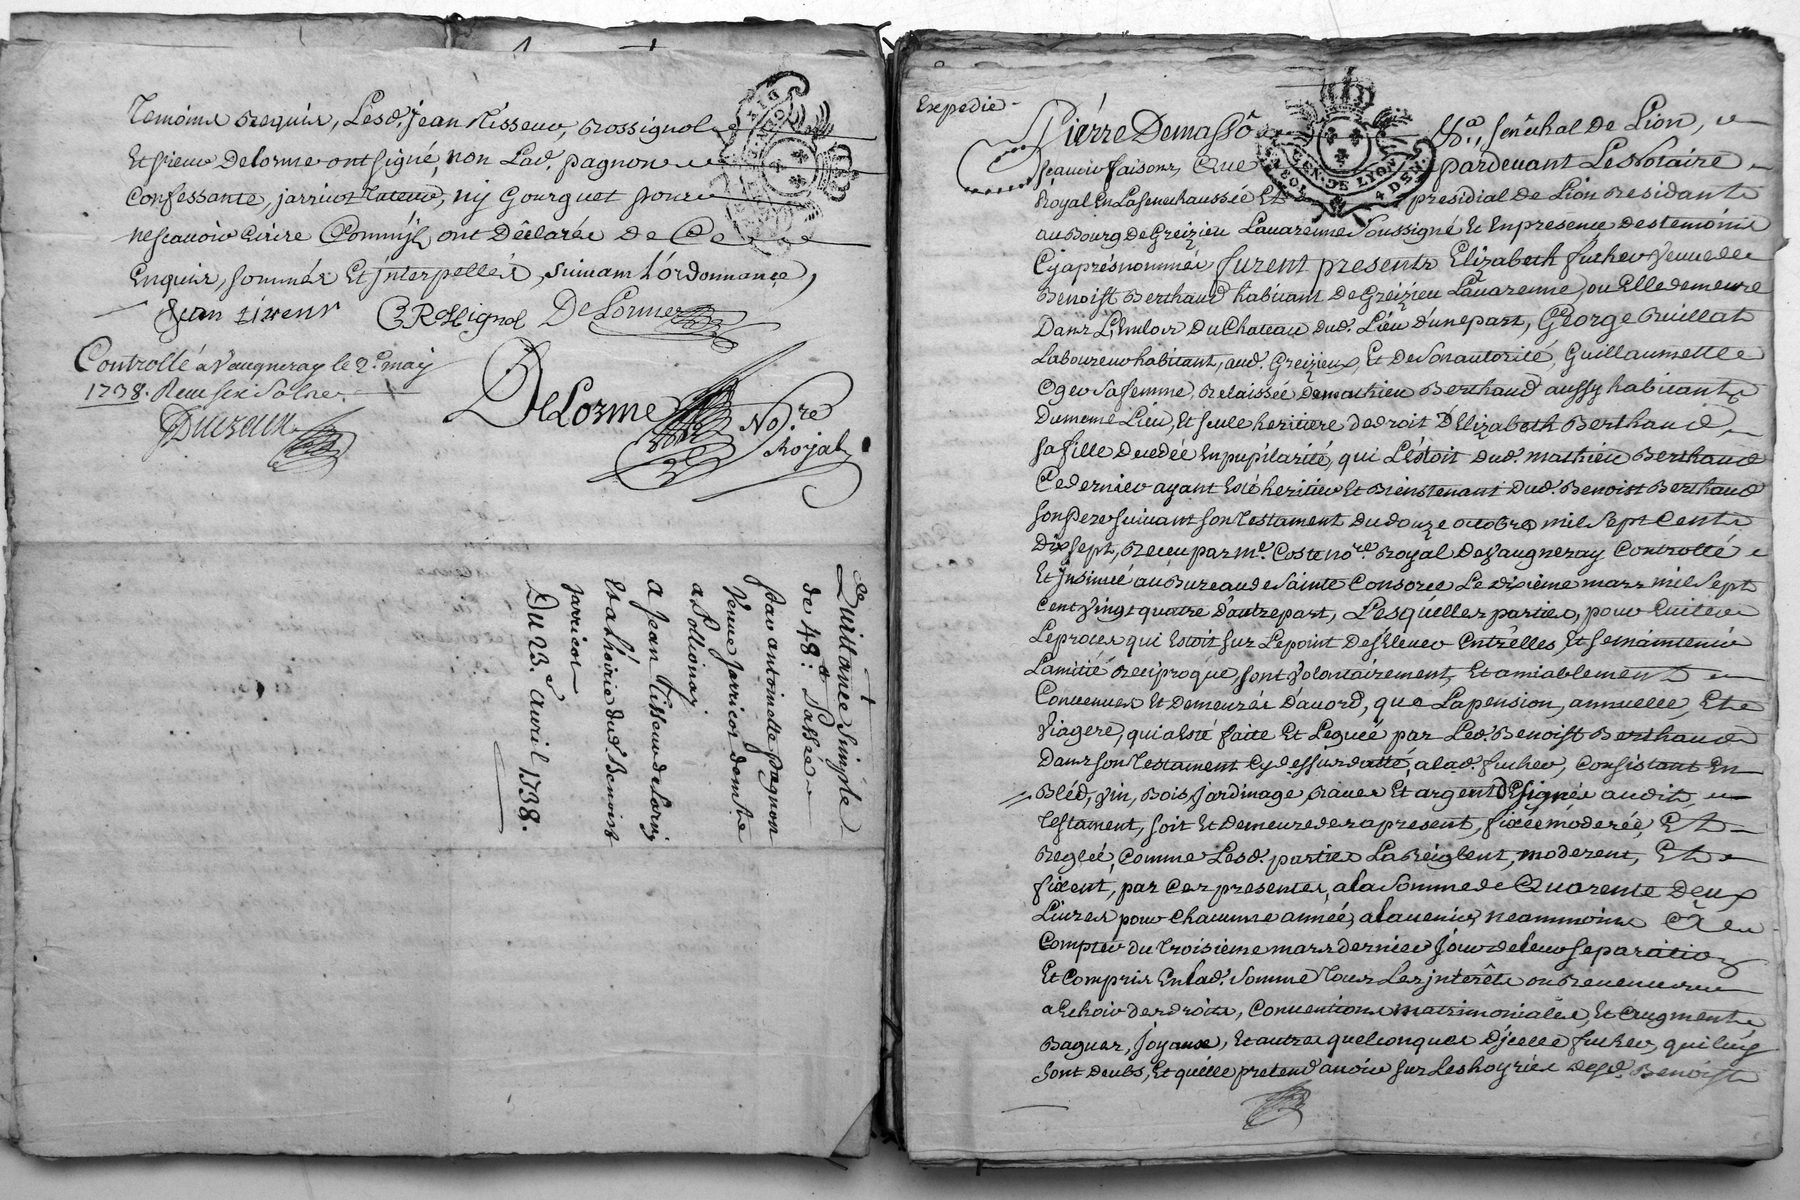 Temoins Requis, Lesd. Jean Tisseur, Rossignol
Et sieur Delorme ont signé, non Lad. pagnon
Confessante, jarricot Tuteur, ny Gourguet pour
ne scavoir Ecrire Comm'ils ont Déclarés De Ce
Enquis, sommés Et jnterpellés, suivant L'ordonnance,
Jean tixeur C Rossignol DeLorme
Controllé a Vaugneray le 2e. may
1738. Receu six Solz.
DeLorme No.re
Royal
Quittance Simple
de 48: tt Passée
par antoinette pagnon
Veuve Jarricot demte
a Pollionay
a Jean Tisseur de Larvy
Et a L'hoirie dud. Benoist
jarricot
Du 23e. avril 1738.
Expedié
Piérre Demassô Sr., Senêchal De Lion,
scavoir faisons, Que pardevant Le Notaire
Royal En La senechaussée Et presidial De Lion Residant
au Bourg De Greizieu Lavarenne Soussigné Et En presence Des temoins
Cy aprés nommés furent presents Elizabeth fucher Veuve de
Benoist Berthaud habitant De Greizieu Lavarenne, ou Elle demeure
Dans L'Enclos Du Chateau dud. Lieu d'une part, George Ruillat
Laboureur habitant, aud. Greizieu, Et De Son autorité, Guillaumette
Oger Sa femme, Relaissée De mathieu Berthaud aussy habitante
Du meme Lieu, Et seule heritiere de droit D'Elizabeth Berthaud
sa fille Decedée En pupilarité, qui L'étoit Dud. mathieu Berthaud
Ce dernier ayant Eté heritier Et Bienstenant Dud. Benoist Berthaud
son Pere suivant son Testament Du douze octobre mil Sept Cent
Dix sept, Receu par me. Coste nore. Royal De Vaugneray Controllé
Et jnsinué au Bureau de Sainte Consorce Le dixième mars mil Sept
Cent Vingt quatre D'autre part, Lesquelles parties, pour Eviter
Le procés qui Estoit Sur Le point De s'Elever Entr'elles, Et se maintenir
L'amitié Reciproque, sont Volontairement, Et amiablement
Convenues Et Demeurés D'acord, que La pension, annuelle, Et
Viagere, qui a Eté faite Et Leguée par Led. Benoist Berthaud
Dans son Testament Cy dessus datté, a lad. fucher, Consistant En
Bléd, Vin, Bois, Jardinage, Raves Et argent D'Esignés audit
Testament, soit Et Demeure des a present, fixée, moderée, Et
Reglée, Comme Lesd. parties La Reiglent, moderent, Et
fixent, par Ces presentes, a la Somme de Quarente Deux
Livres pour Chacune année, a l'avenir, neammoins Et a
Compter du Troisième mars dernier jour de Leur Separation
Et Compris En Lad. Somme Tous Les jnterêts ou Revenus
a Echoir des droits, Conventions matrimoniales, Et augment
Bagues, Joyaux, Et autres quelconques D'jcelle fucher, qui luy
sont Deubs, Et qu'elle pretend avoir sur Les hoyries desd. Benoist